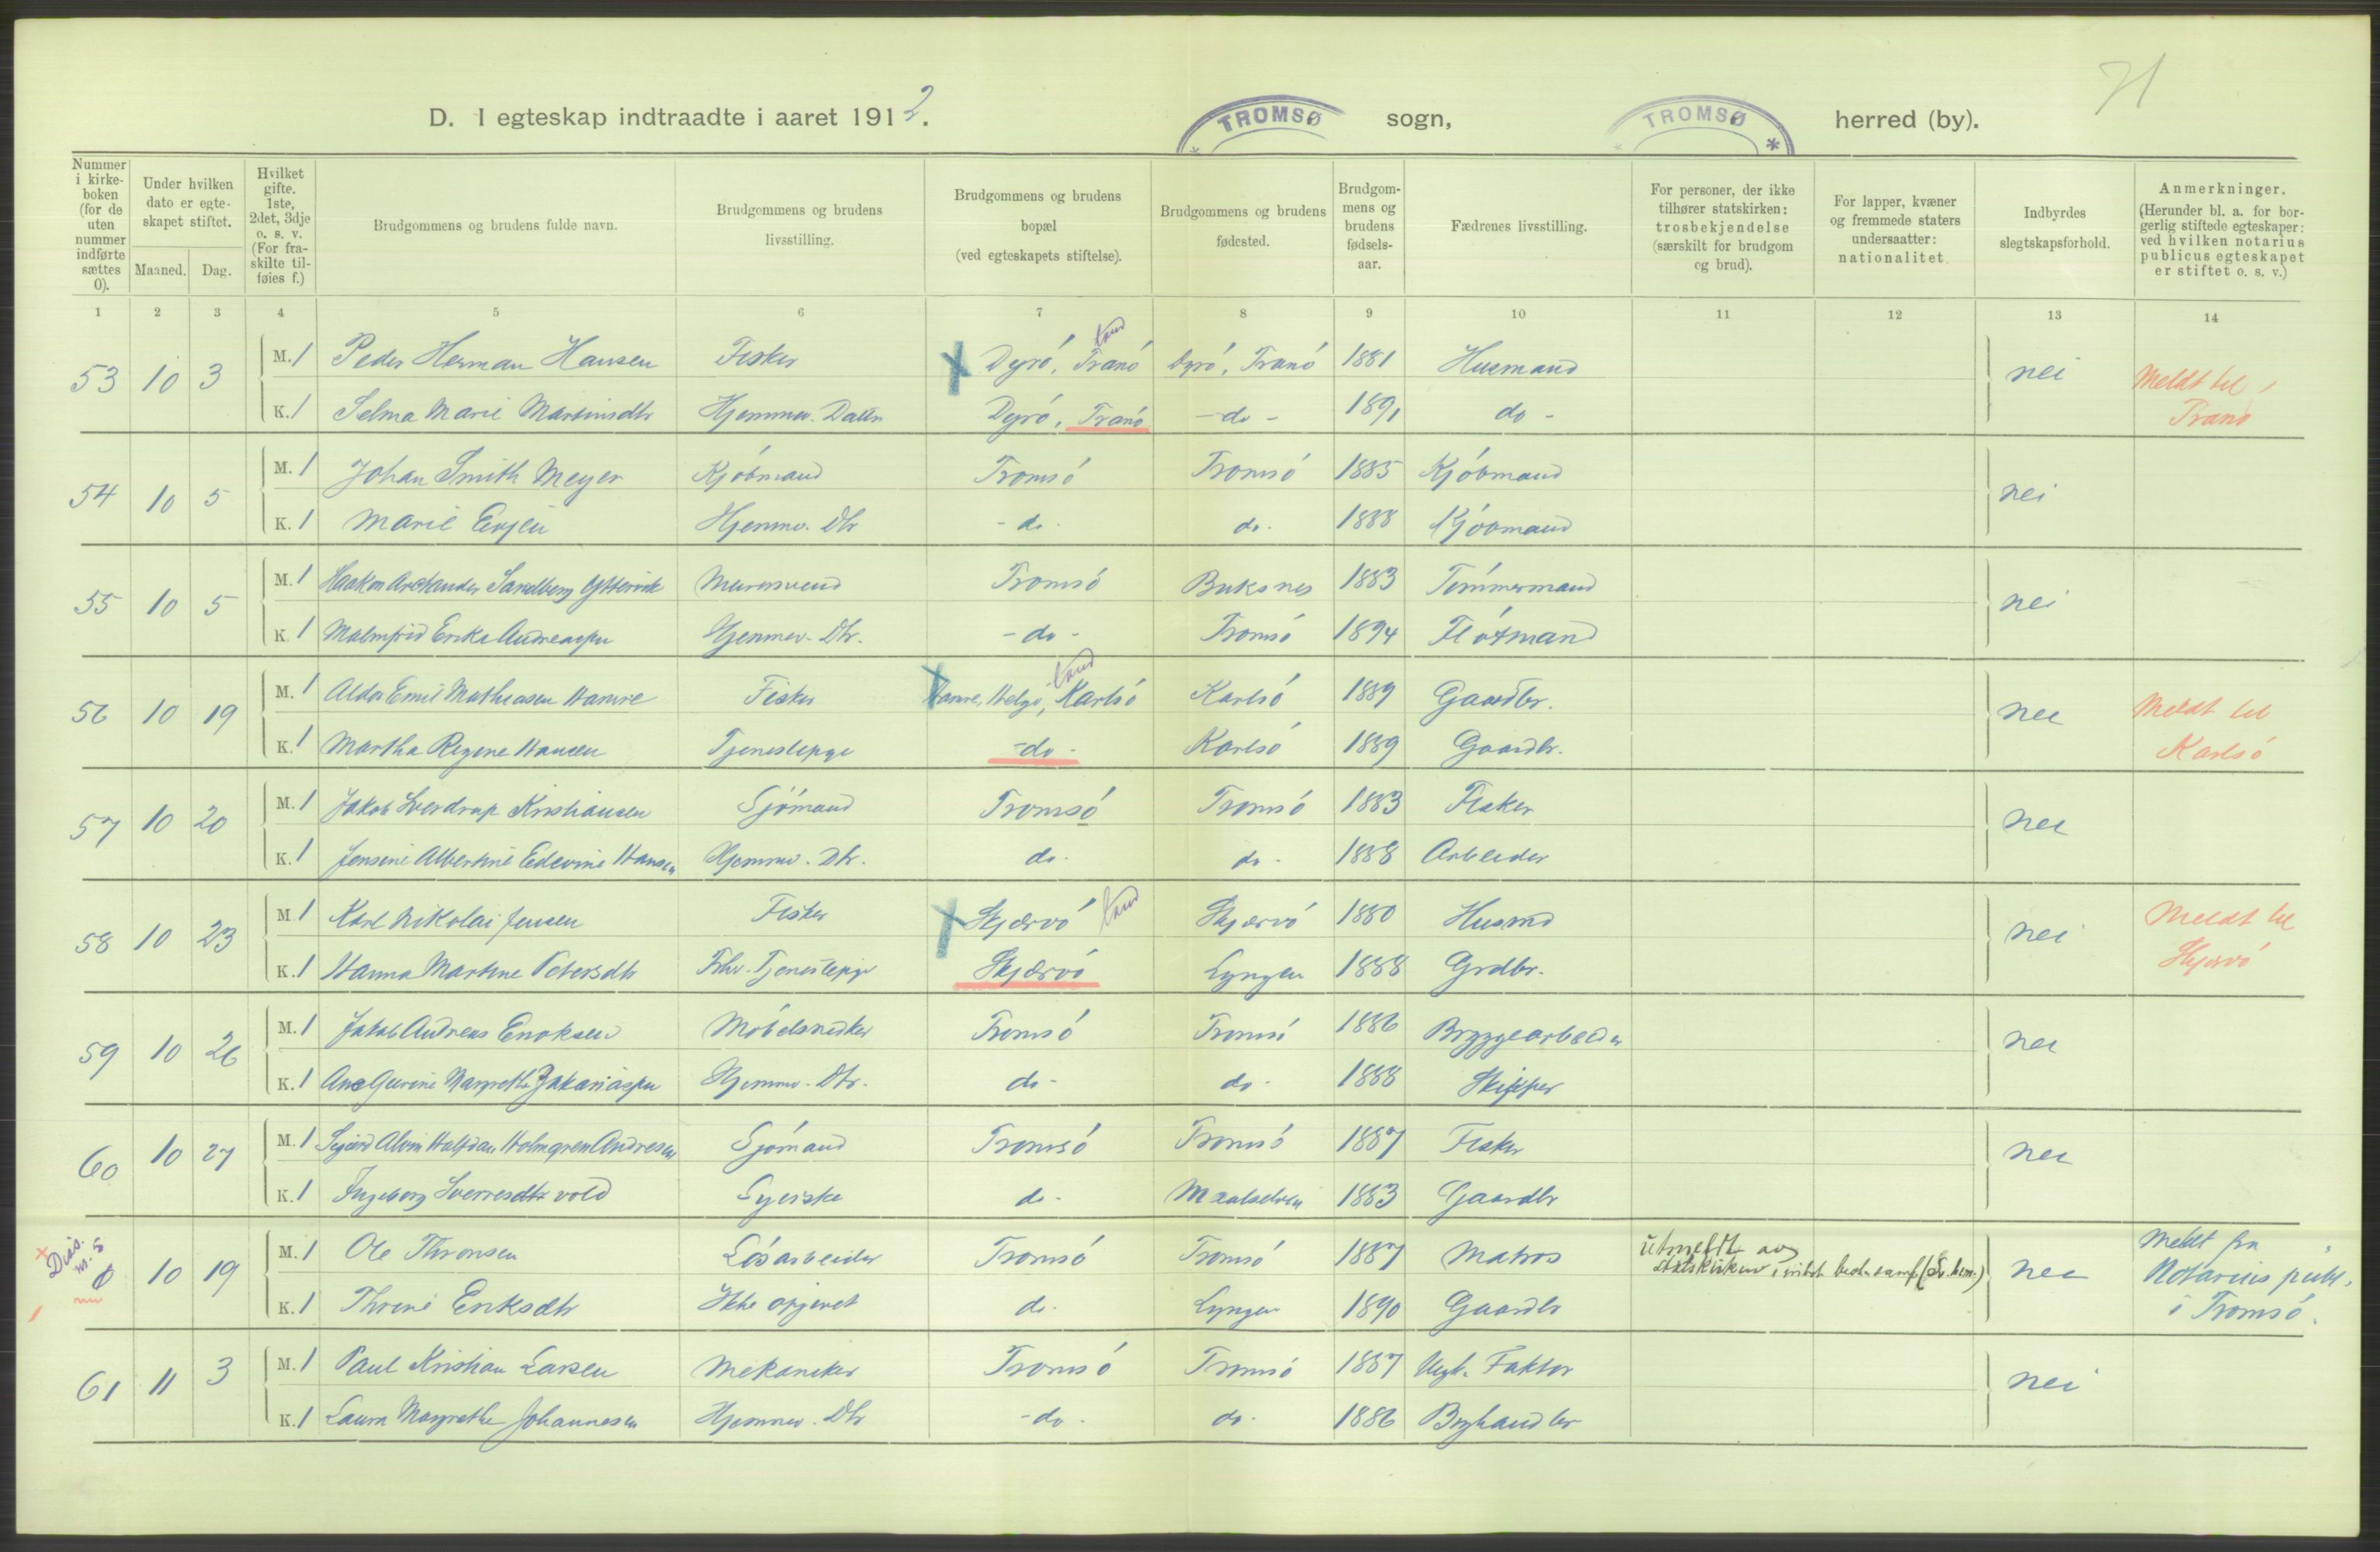 71
D. I egteskap indtraadte i aaret 1912.
TROMSØ sogn, TROMSØ herred (by).
Nummer i kirkeboken (for de uten nummer indførte sættes 0).
Under hvilken dato er egteskapet stiftet.
Maaned.
Dag.
Hvilket gifte. 1ste, 2det, 3dje o. s. v. (For fraskilte tilføies f.)
Brudgommens og brudens fulde navn.
Brudgommens og brudens livsstilling.
Brudgommens og brudens bopæl (ved egteskapets stiftelse).
Brudgommens og brudens fødested.
Brudgommens og brudens fødselsaar.
Fædrenes livsstilling.
For personer, der ikke tilhører statskirken: trosbekjendelse (særskilt for brudgom og brud).
For lapper, kvæner og fremmede staters undersaatter: nationalitet.
Indbyrdes slegtskapsforhold.
Anmerkninger. (Herunder bl. a. for borgerlig stiftede egteskaper: ved hvilken notarius publicus egteskapet er stiftet o. s. v.)
1 2 3 4 5 6 7 8 9 10 11 12 13 14
land
53 10 3 M. 1 Peder Herman Hansen Fisker Dyrö, Tranö Dyrö, Tranö 1881 Husmand nei Meldt til Tranö
K. 1 Selma Marie Martinsdtr Hjemmev. Dattr Dyrö, Tranö - do - 1891 do -
54 10 5 M. 1 Johan Smith Meyer Kjöbmand Tromsö Tromsö 1885 Kjöbmand nei
K. 1 Marie Evjen Hjemmv. Dtr - do - do. 1888 Kjöbmand
55 10 5 M. 1 Haakon Sandberg Yttervik Murersvend Tromsö Buksnes 1883 Tömmermand nei
K. 1 Malmfrid Erika Andreassen Hjemmev. Dtr. - do - Tromsö 1894 Flötmand
land
56 10 19 M. 1 Aldor Emil Mathiasen Hamre Fisker Hamre, Helgö, Karlsö Karlsö 1889 Gaardbr. nei Meldt til Karlsö
K. 1 Martha Regine Hansen Tjenestepige - do - Karlsö 1889 Gaardbr.
57 10 20 M. 1 Jakob Sverdrup Kristiansen Sjömand Tromsö Tromsö 1883 Fisker nei
K. 1 Jensine Albertine Edevine Hansen Hjemmv. Dtr. do. do. 1888 Arbeider
58 10 23 M. 1 Karl Nikolai Jensen Fisker Skjærvö land Skjærvö 1880 Husmd nei Meldt til Skjervö
K. 1 Hanna Martine Petersdtr Tjenestepige Skjærvö Lyngen 1888 Grdbr.
59 10 26 M. 1 Jakob Andreas Enoksen Möbelsnedker Tromsö Tromsö 1886 Bryggearbeider nei
K. 1 Ane Margrethe Zakariassen Hjemmv. Dtr. do - do - 1888 Skipper
60 10 27 M. 1 Sigurd Alvin Halfdan Holmgren Andresen Sjömand Tromsö Tromsö 1887 Fisker nei
K. 1 Ingeborg Sverresdtr vold Syerske do - Maalselven 1883 Gaardbr
Diss. nr. 5
0 10 19 M. 1 Ole Thronsen Lösarbeider Tromsö Tromsö 1887 Matros utmeldt av statskirken nei Meldt fra Notarius publ. i Tromsö.
K. 1 Thrine Eriksdtr Ikke opgivet do. Lyngen 1890 Gaardbr
61 11 3 M. 1 Paul Kristian Larsen Mekaniker Tromsö Tromsö 1887 Faktor nei
K. 1 Laura Margrethe Johannesen Hjemmev. Dtr - do - do - 1886